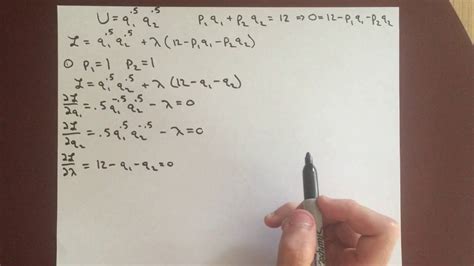 U = q₁^.5 q₂^.5 P₁q₁ + P₂q₂ = 12 ⇒ 0 = 12 - P₁q₁ - P₂q₂
ℒ = q₁^.5 q₂^.5 + λ(12 - P₁q₁ - P₂q₂)
⓪ P₁ = 1 P₂ = 1
ℒ = q₁^.5 q₂^.5 + λ(12 - q₁ - q₂)
∂ℒ/∂q₁ = .5q₁^-.5 q₂^.5 - λ = 0
∂ℒ/∂q₂ = .5q₁^.5 q₂^-.5 - λ = 0
∂ℒ/∂λ = 12 - q₁ - q₂ = 0